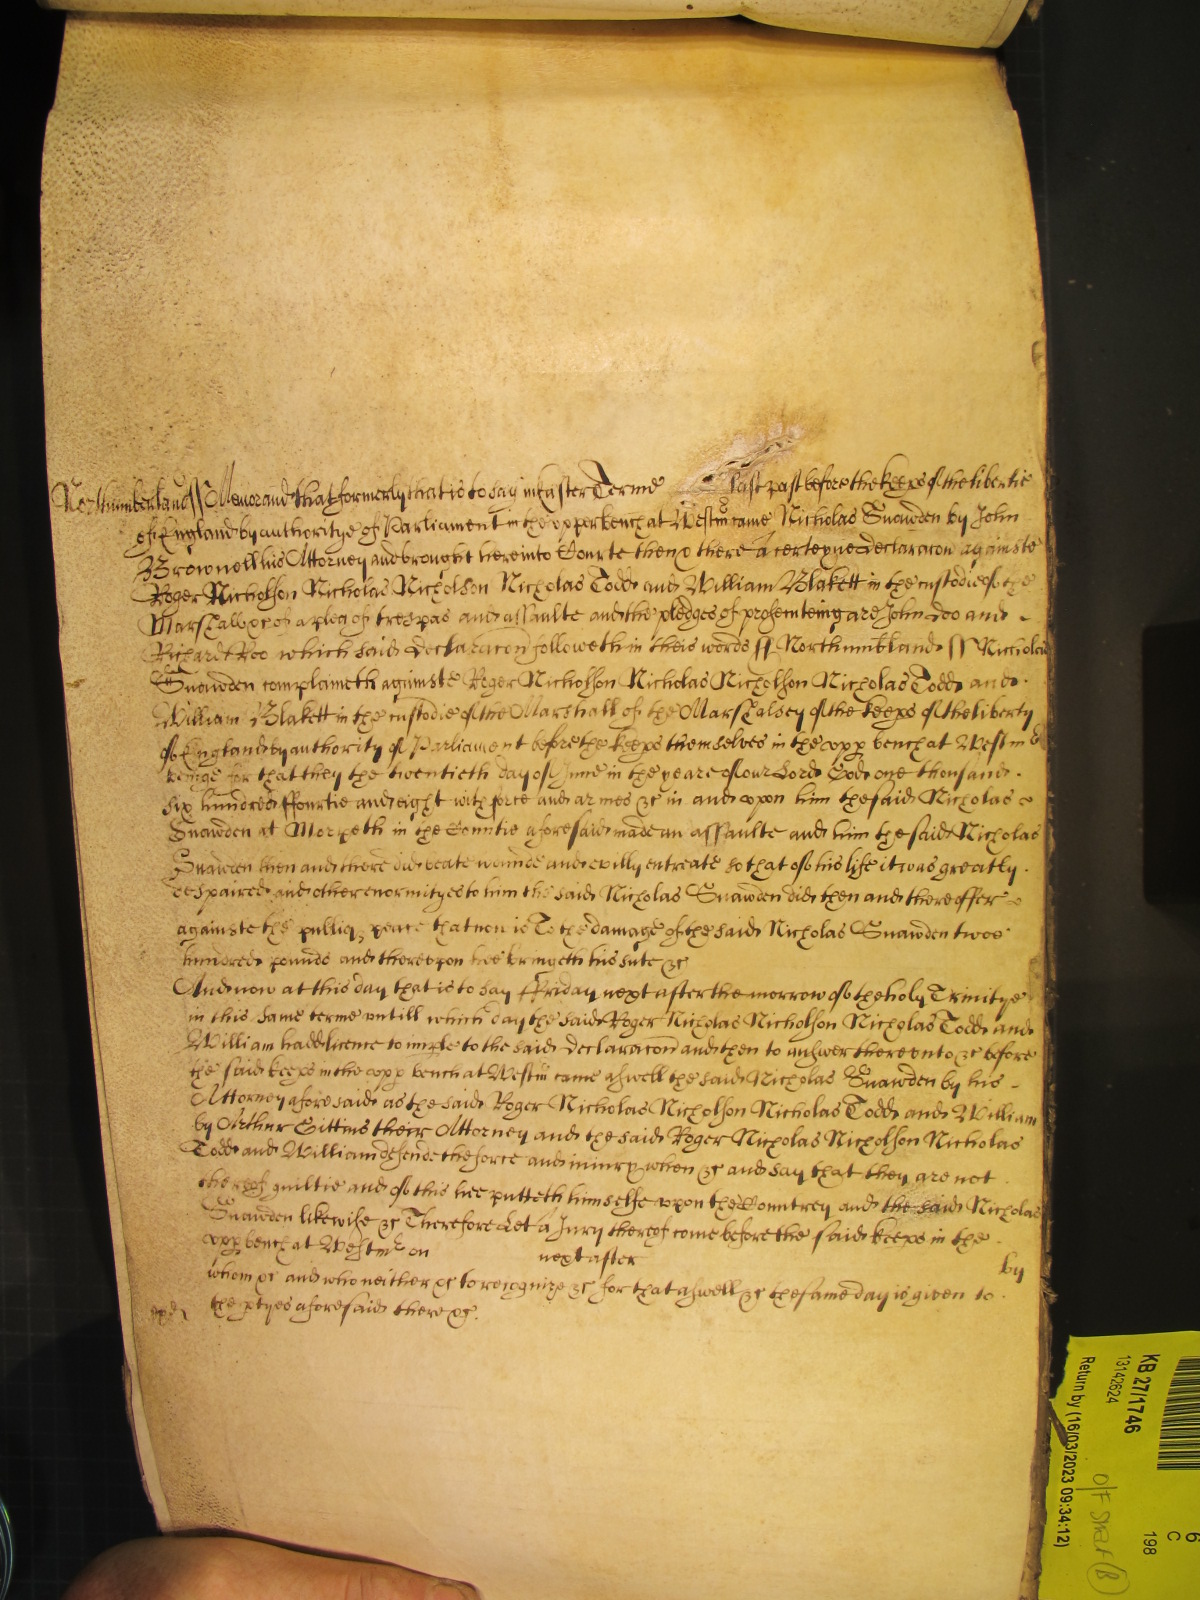 Northumberland ss Memorand that formerly that is to say in Easter Terme last past before the keeps of the libertie
of England by authoritye of Parliament in the upper bench at Westm came Nicholas Snawden by John
Brownell his Attorney and brought here into Courte then & there a certeyne declaracon againste
Roger Nicholson Nicholas Nicholson Nicholas Todd and William Blakett in the custodie of the
Marshall &c of a plea of trespas and assaulte and the pledges of prosecuteing are John Doo and
Richard Roo which said declaracon followeth in theis words ss Northumbland ss Nicholas
Snawden complaineth againste Roger Nicholson Nicholas Nicholson Nicholas Todd and
William Blakett in the custodie of the Marshall of the Marshalsey of the keeps of the liberty
of England by authority of Parliament before the keeps themselves in the upp bench at Westm
beinge for that they the twentieth day of June in the yeare of our Lord God one thousand
six hundred ffourtie and eight with force and armes &c in and upon him the said Nicholas
Snawden at Morpeth in the Countie aforesaid made an assaulte and him the said Nicholas
Snawden then and there did beate wounde and evilly entreate so that of his life it was greatly
despaired and other enormityes to him the said Nicholas Snawden did then and there offer
againste the publiq peace that now is To the damage of the said Nicholas Snawden twoe
hundred pounds and thereupon hee bringeth his sute &c
And now at this day that is to say ffriday next after the morrow of the holy Trinitye
in this same terme untill which day the said Roger Nicholas Nicholson Nicholas Todd and
William hadd licence to imple to the said declaracon and then to answer thereunto &c before
the said keeps in the upp bench at Westm came aswell the said Nicholas Snawden by his
Attorney aforesaid as the said Roger Nicholas Nicholson Nicholas Todd and William
by Arthur Gittins their Attorney and the said Roger Nicholas Nicholson Nicholas
Todd and William defende the force and iniury when &c and say that they are not
thereof guiltie and of this hee putteth himselfe upon the Countrey and the said Nicholas
Snawden likewise &c Therefore Let a Jury thereof come before the said keeps in the
upp bench at Westm on next after by
whom &c and who neither &c to recognize &c for that aswell &c the same day is given to
the ptyes aforesaid there &c.
KB 27/1746
13142624
Return by (16/03/2023 09:34:12)
6
C
198